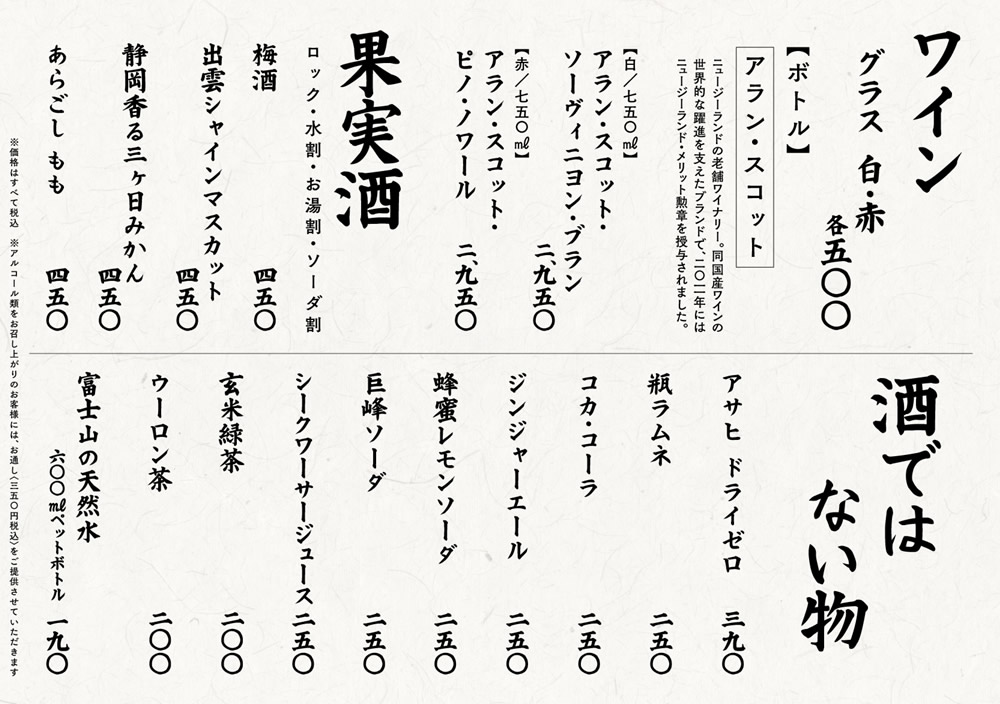 ワイン
グラス 白・赤
各五〇〇
【ボトル】
アラン・スコット
ニュージーランドの老舗ワイナリー。同国産ワインの
世界的な躍進を支えたブランドで、二〇一一年には
ニュージーランド・メリット勲章を授与されました。
【白／七五〇㎖】
アラン・スコット・
ソーヴィニヨン・ブラン
二、九五〇
【赤／七五〇㎖】
アラン・スコット・
ピノ・ノワール
二、九五〇
果実酒
ロック・水割・お湯割・ソーダ割
梅酒 四五〇
出雲シャインマスカット
四五〇
静岡香る三ヶ日みかん
四五〇
あらごし もも 四五〇
酒では
ない物
アサヒ ドライゼロ 三九〇
瓶ラムネ 二五〇
コカ・コーラ 二五〇
ジンジャーエール 二五〇
蜂蜜レモンソーダ 二五〇
巨峰ソーダ 二五〇
シークワーサージュース 二五〇
玄米緑茶 二〇〇
ウーロン茶 二〇〇
富士山の天然水
六〇〇㎖ペットボトル 一九〇
※価格はすべて税込 ※アルコール類をお召し上がりのお客様には、お通し（三五〇円税込）をご提供させていただきます